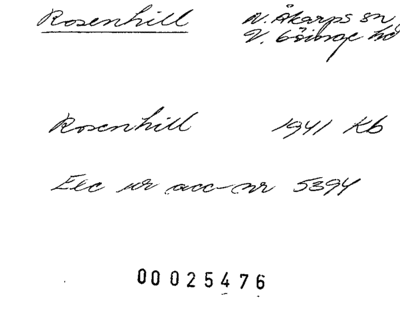 Rosenhill N. Åkarps sn
V. Göinge hd
Rosenhill 1941 Kb
Exc ur acc-nr 5394
00025476